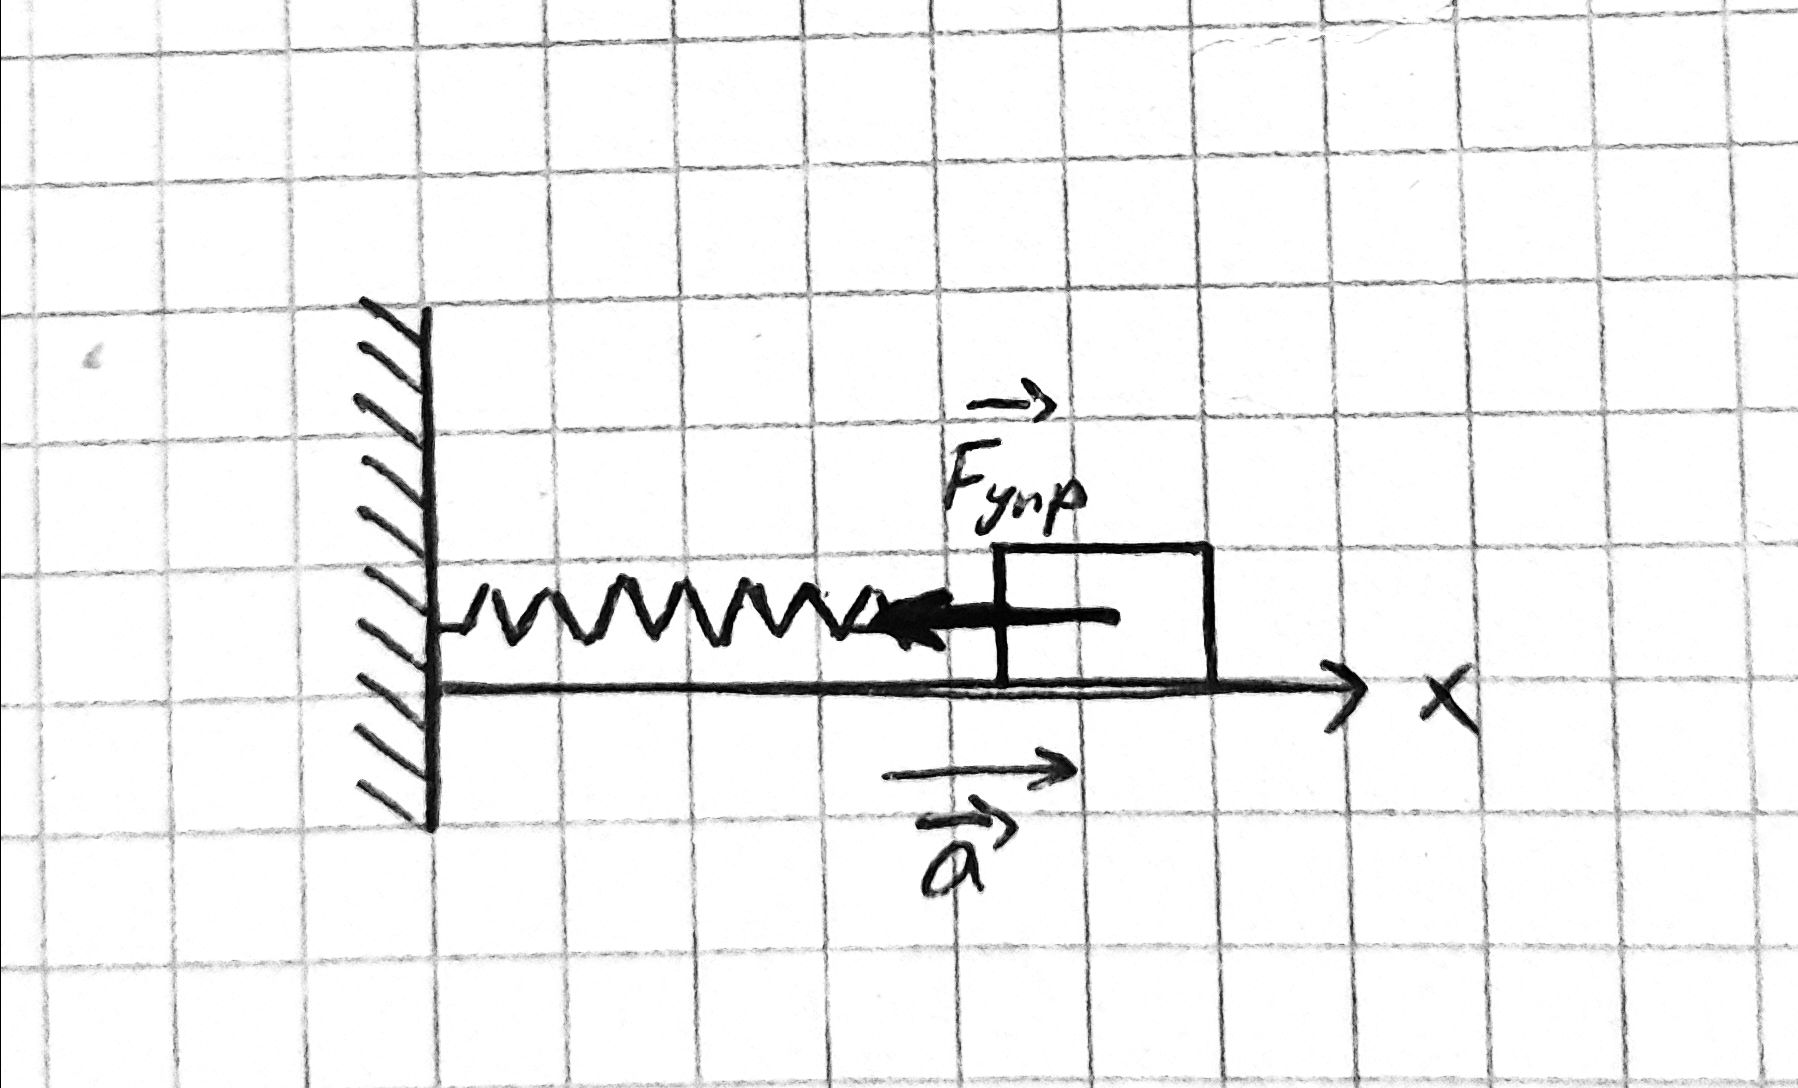 Fупр
x
a